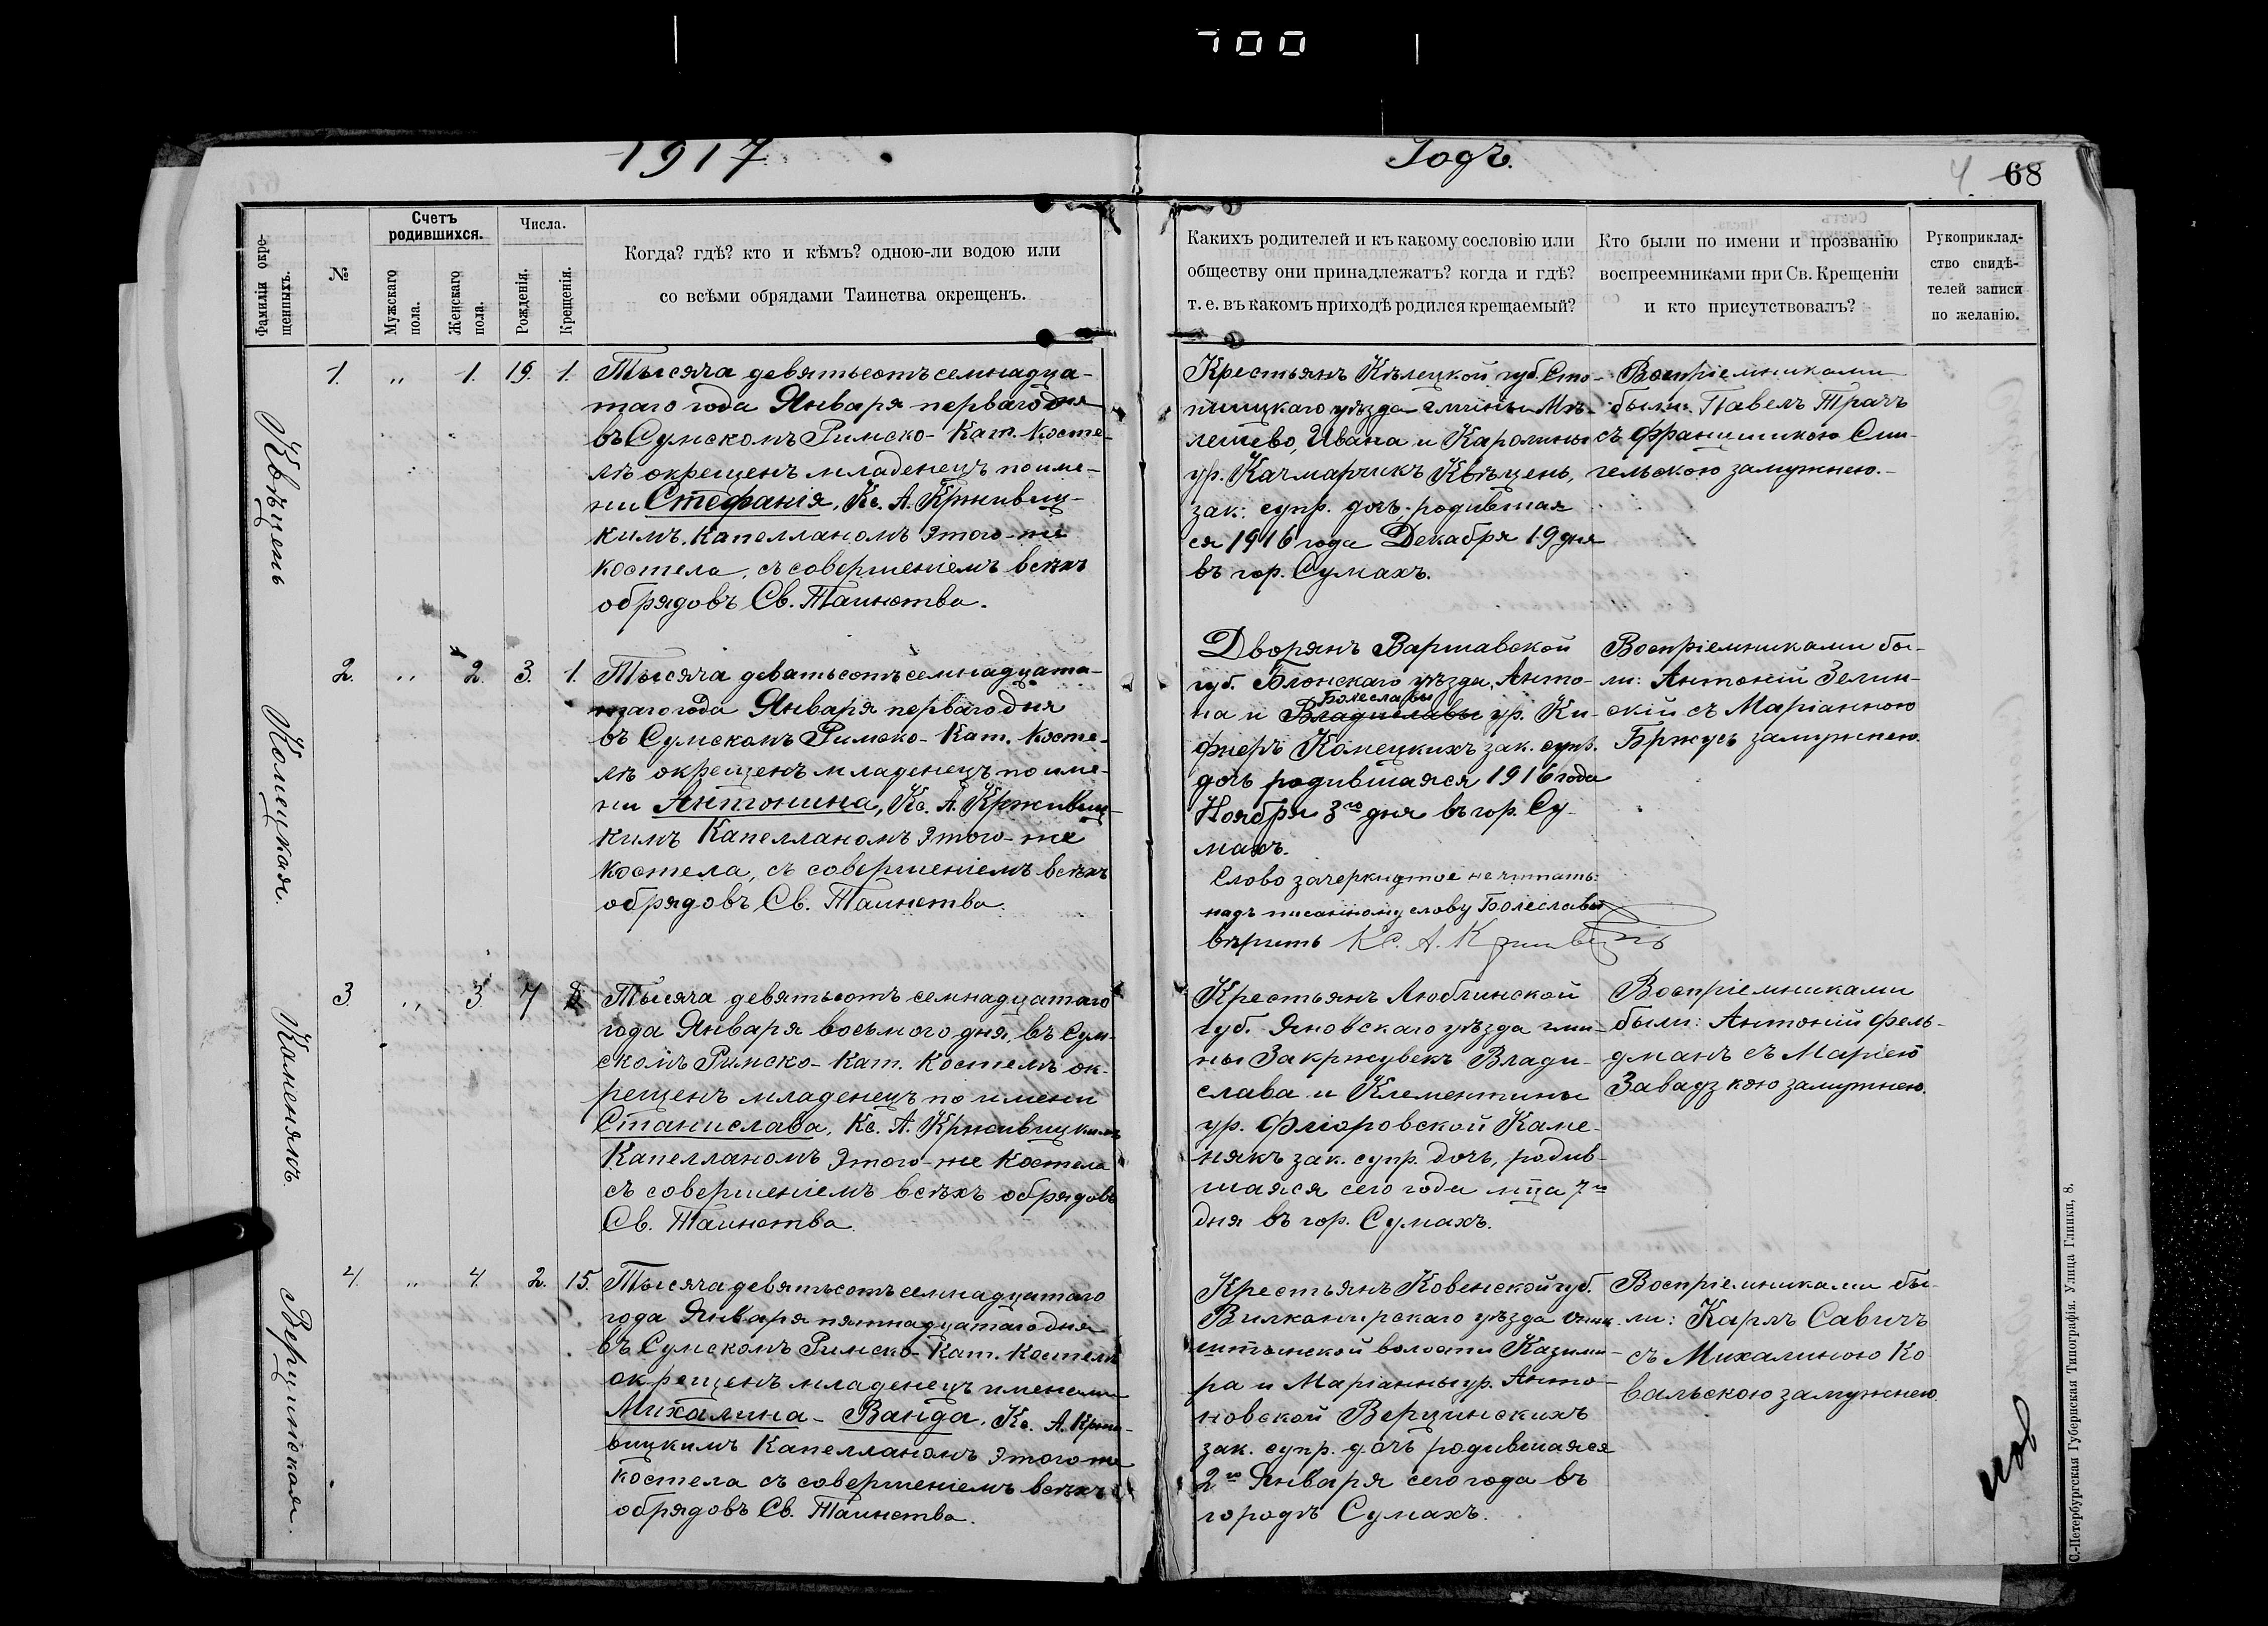 700
1917
Годъ.
4 68
Фамиліи окре-
щенныхъ.
№
Счетъ
родившихся.
Мужскаго
пола.
Женскаго
пола.
Числа.
Рожденія.
Крещенія.
Когда? гдѣ? кто и кѣмъ? одною-ли водою или
со всѣми обрядами Таинства окрещенъ.
Какихъ родителей и къ какому сословію или
обществу они принадлежатъ? когда и гдѣ?
т. е. въ какомъ приходѣ родился крещаемый?
Кто были по имени и прозванію
воспреемниками при Св. Крещеніи
и кто присутствовалъ?
Рукоприклад-
ство свидѣ-
телей записи
по желанію.
Квѣцень
1. „ 1. 19. 1.
Тысяча девятьсотъ семнадца-
таго года Января перваго дня
въ Сумскомъ Римско-Кат. Косте-
лѣ окрещенъ младенецъ по име-
ни Стефанія, Кс. А. Крживиц-
кимъ. Капелланомъ этого-же
костела, съ совершеніемъ всѣхъ
обрядовъ Св. Таинства.
Крестьянъ Кѣлецкой губ. Сто-
пницкаго уѣзда гмины
Ивана и Каролины
ур. Качмарчикъ Квѣцень,
зак: супр. дочь, родившая
ся 1916 года Декабря 19 дня
въ гор. Сумахъ.
Воспріемниками
были: Павелъ Трачъ
съ Францишкою Сми-
гельскою замужнею.
Конецкая.
2. „ 2. 3. 1.
Тысяча девятьсотъ семнадцата-
таго года Января перваго дня
въ Сумскомъ Римско-Кат. Косте-
лѣ окрещенъ младенецъ по име-
ни Антонина, Кс. А. Крживиц-
кимъ Капелланомъ этого-же
костела, съ совершеніемъ всѣхъ
обрядовъ Св. Таинства.
Дворянъ Варшавской
губ. Блонскаго уѣзда, Анто-
Болеславы
на и Владиславы ур. Ки-
феръ Конецкихъ зак. супр.
дочь родившаяся 1916 года
Ноября 3го дня въ гор. Су-
махъ.
Слово зачеркнутое не читать:
надъ писанному слову Болеславы
вѣрить Кс. А. Крживицкій
Воспріемниками бы-
ли: Антоній Зелин-
скій съ Маріанною
Бржусь замужнею.
Каменякъ.
3. „ 3 7 8
Тысяча девятьсотъ семнадцатаго
года Января восьмого дня, въ Сум-
скомъ Римско-Кат. Костелѣ ок-
рещенъ младенецъ по имени
Станислава, Кс. А. Крживицкимъ
Капелланомъ этого-же Костела
съ совершеніемъ всѣхъ обрядовъ
Св. Таинства.
Крестьянъ Люблинской
губ. Яновскаго уѣзда гми-
ны Закржувекъ Влади-
слава и Клементины
ур. Фліоровской Каме-
някъ зак. супр. дочь, родив-
шаяся сего года мца 7го
дня въ гор. Сумахъ.
Воспріемниками
были: Антоній Фель-
дманъ съ Маріею
Завадзкою замужнею.
Верцинская.
4. „ 4. 2. 15.
Тысяча девятьсотъ семнадцатаго
года Января пятнадцатаго дня
въ Сумскомъ Римско-Кат. Костелѣ
окрещенъ младенецъ именами
Михалина-Ванда, Кс. А. Кржи-
вицкимъ Капелланомъ этого же
костела съ совершеніемъ всѣхъ
обрядовъ Св. Таинства.
Крестьянъ Ковенской губ.
Вилкомирскаго уѣзда Оник-
штынской волости Казими-
ра и Маріанны ур. Анто-
новской Верцинскихъ
зак. супр. дочь родившаяся
2го Января сего года въ
городѣ Сумахъ.
Воспріемниками бы-
ли: Карлъ Савичъ
съ Михалиною Ко-
вальскою замужнею.
С.-Петербургская Губернская Типографія. Улица Глинки, 8.